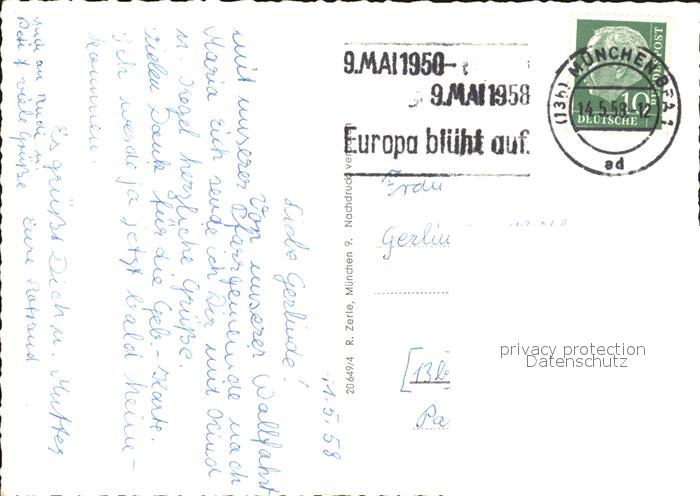 9.MAI 1950-
9.MAI 1958
Europa blüht auf.
(13b) MÜNCHEN BPA 1
14.5.58-12
ad
10
DEUTSCHE
BUNDESPOST
Frau
Gerlin
[13b
Pa
privacy protection
Datenschutz
20649/4 R. Zerle, München 9. Nachdruck ver
11.5.58
Liebe Gerlinde!
Von unserer Wallfahrt
mit unserer Pfarrgemeinde nach
Maria Eich sende ich Dir mit Kind
u. Kegel herzliche Grüße.
Vielen Dank für die Geb.-Karte.
Ich werde ja jetzt bald heim-
kommen.
Es grüßt Dich u. Mutter
Eure
auch an Rudi u.
viele Grüße